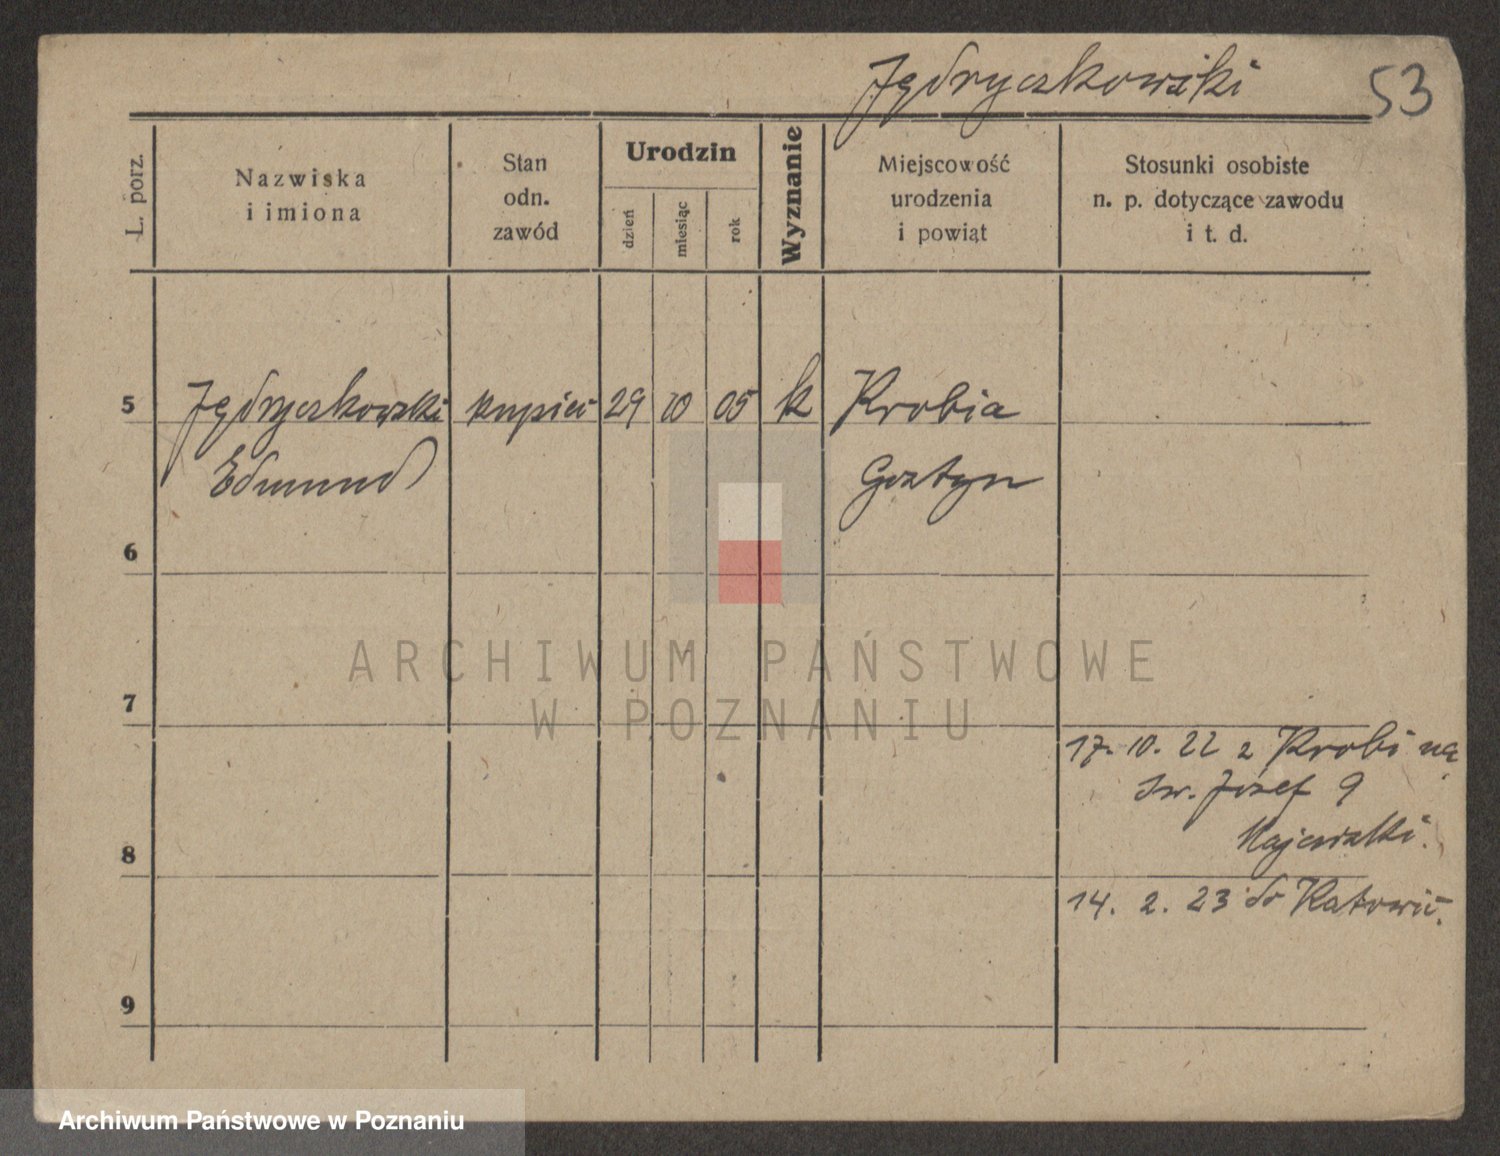 Jędryczkowski 53
L. porz.
Nazwiska
i imiona
Stan
odn.
zawód
Urodzin
dzień
miesiąc
rok
Wyznanie
Miejscowość
urodzenia
i powiąt
Stosunki osobiste
n. p. dotyczące zawodu
i t. d.
5 Jędryczkowski kupiec 29 10 05 k Krobia
Edmund Gostyn
6
ARCHIWUM PAŃSTWOWE
W POZNANIU
7
17. 10. 22 z Krobi na
św. Józef 9
Majewski.
8
14. 2. 23 do Katowic.
9
Archiwum Państwowe w Poznaniu